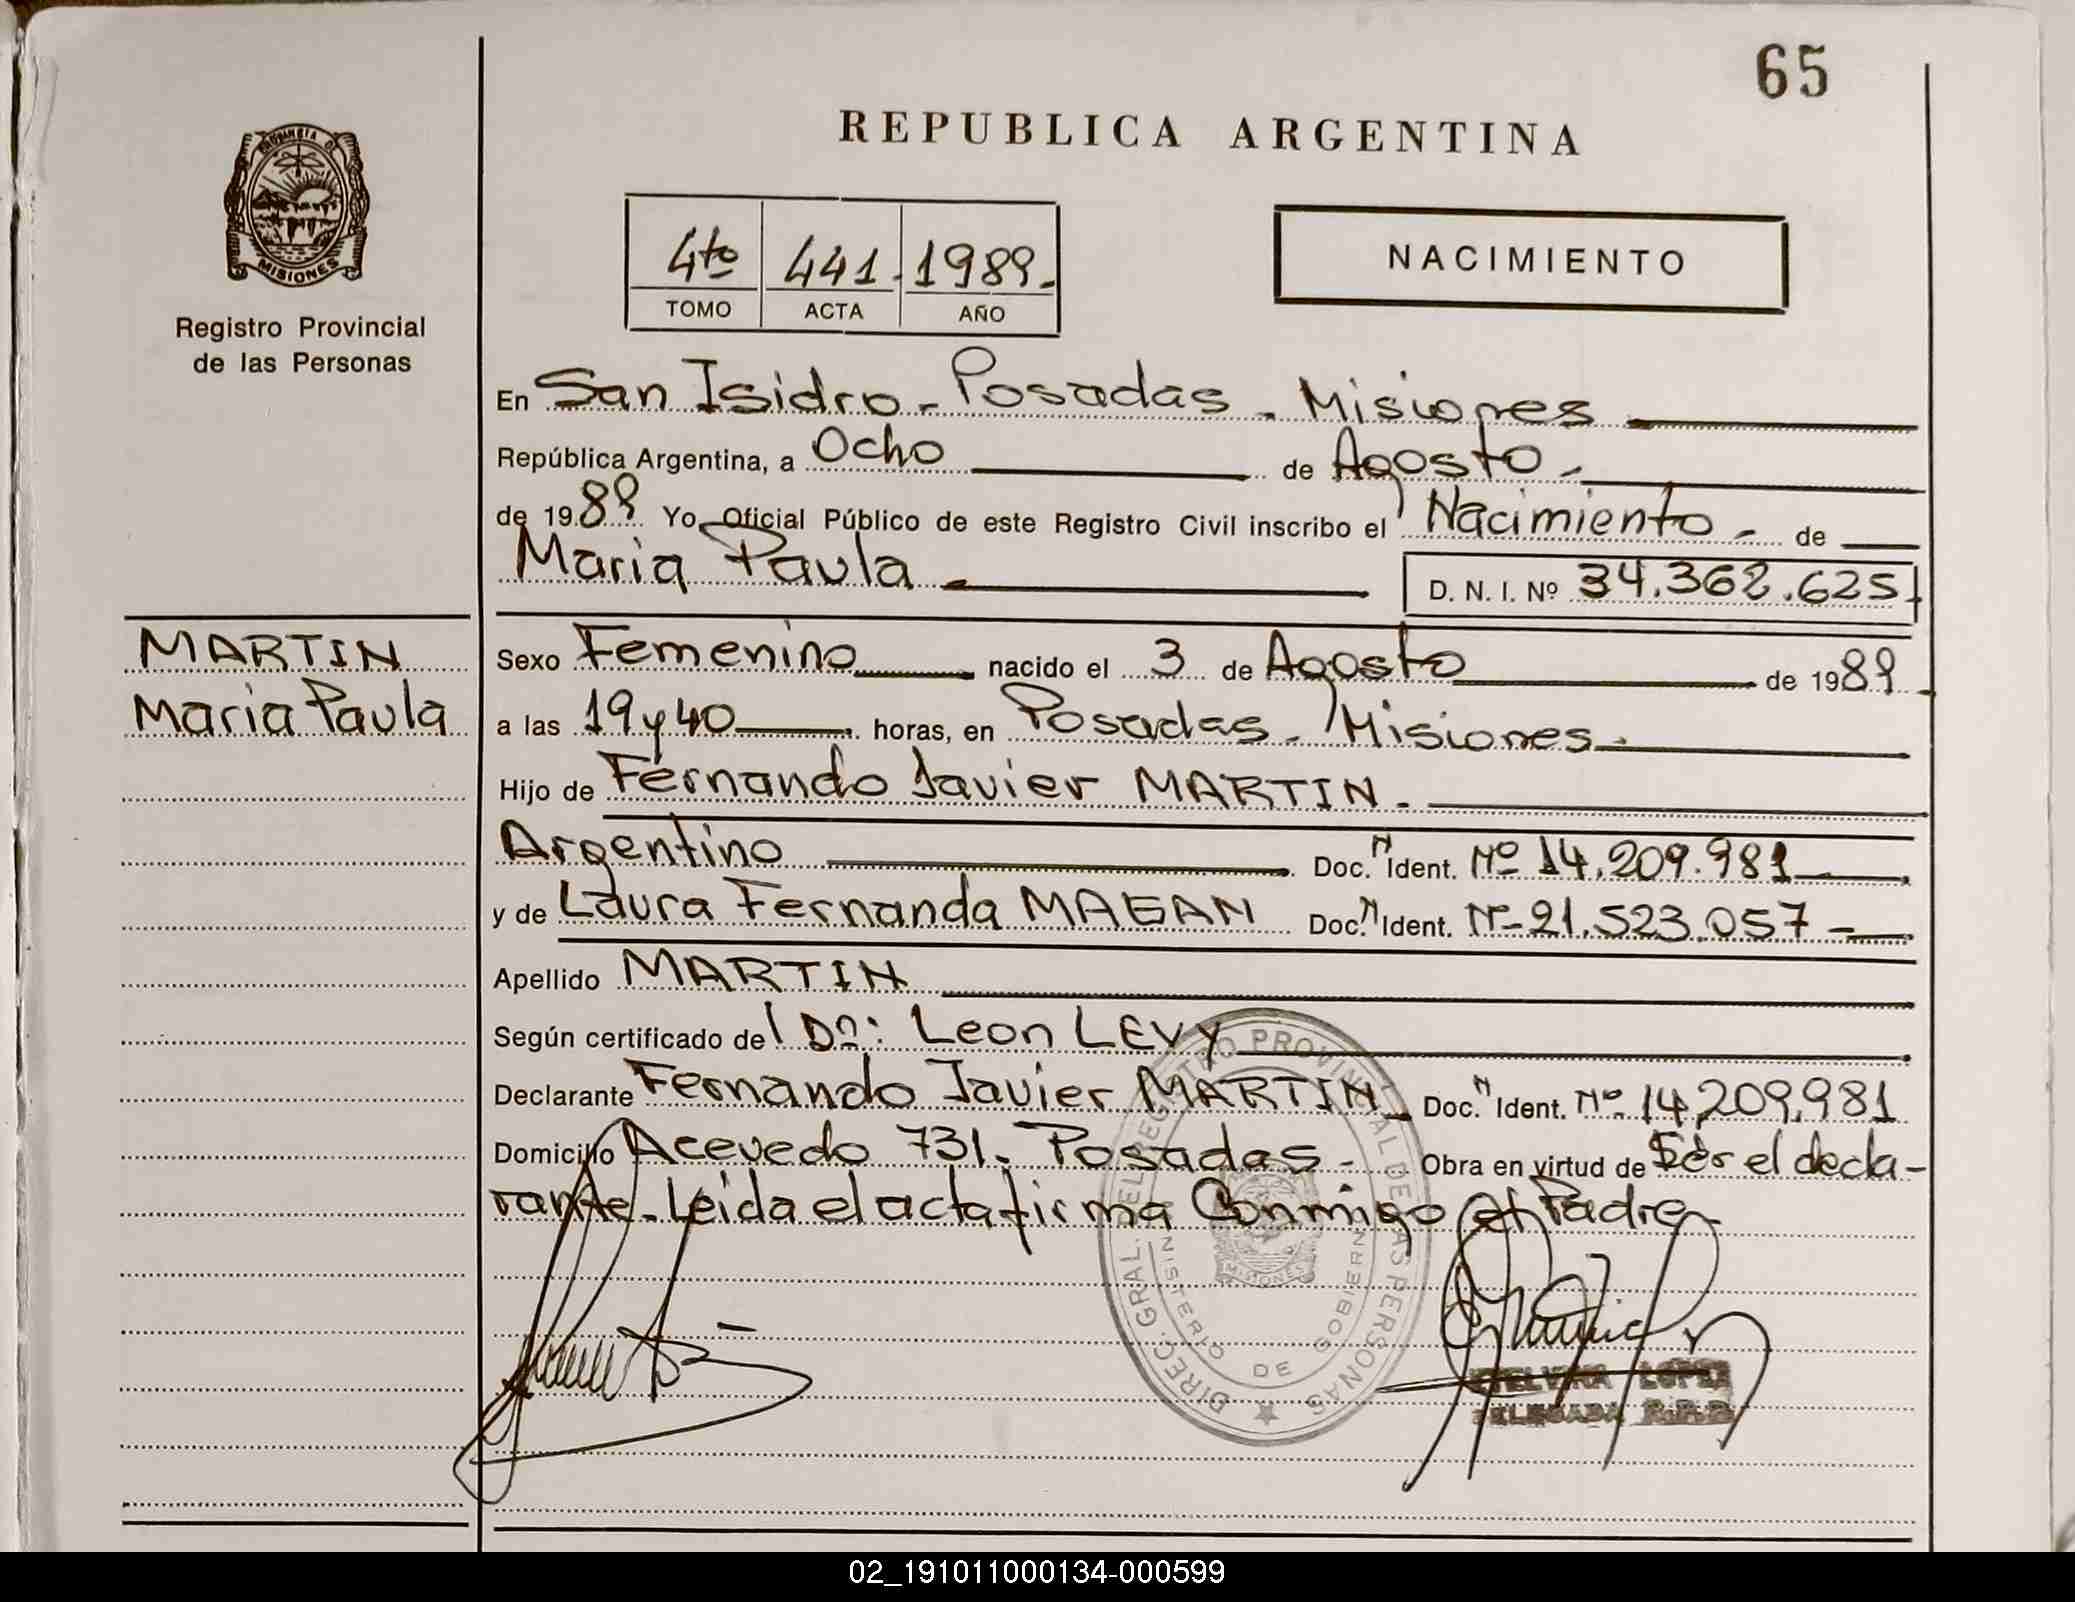 65
REPUBLICA ARGENTINA
PROVINCIA DE
MISIONES
Registro Provincial
de las Personas
4to 441. 1989.
TOMO ACTA AÑO
NACIMIENTO
En San Isidro - Posadas - Misiones
República Argentina, a Ocho de Agosto -
de 1989 Yo, Oficial Público de este Registro Civil inscribo el Nacimiento - de
Maria Paula - D. N. I. Nº 34.362.625
MARTIN
Maria Paula
Sexo Femenino nacido el 3 de Agosto de 1989
a las 19 y 40 horas, en Posadas - Misiones -
Hijo de Fernando Javier MARTIN -
Argentino Doc. N Ident. Nº 14.209.981
y de Laura Fernanda MAGAN Doc. N Ident. Nº 21.523.057 -
Apellido MARTIN
Según certificado del Dn: Leon LEVY
Declarante Fernando Javier MARTIN - Doc. N Ident. Nº 14.209.981
Domicilio Acevedo 731. Posadas - Obra en virtud de Ser el decla-
rante - Leida el acta firma Conmigo el Padre -
DIREC. GRAL. DEL REGISTRO PROVINCIAL DE LAS PERSONAS
MINISTERIO DE GOBIERNO
MISIONES
ETELVINA LOPEZ
DELEGADA R.P.P.
02_191011000134-000599